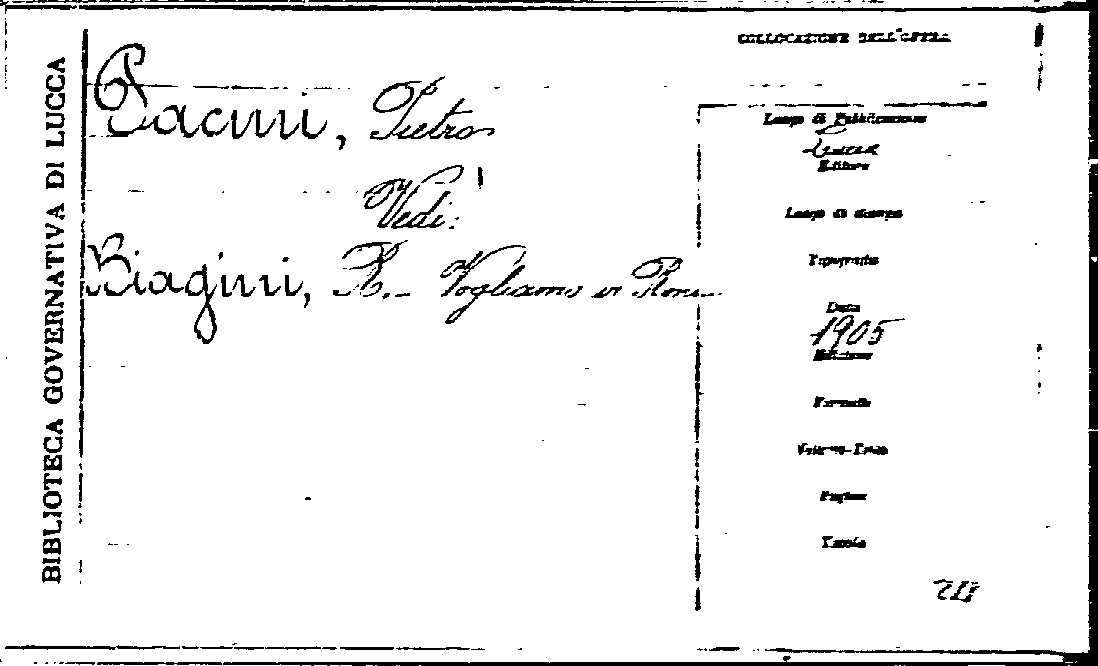 BIBLIOTECA GOVERNATIVA DI LUCCA
Pacini, Pietro
Vedi:
Biagini, P. - Vogliamo
COLLOCAZIONE DELL'OPERA
Luogo di Pubblicazione
Lucca
Editore
Luogo di stampa
Tipografia
Data
1905
Edizione
Formato
Volume-Tomo
Pagine
Tavole